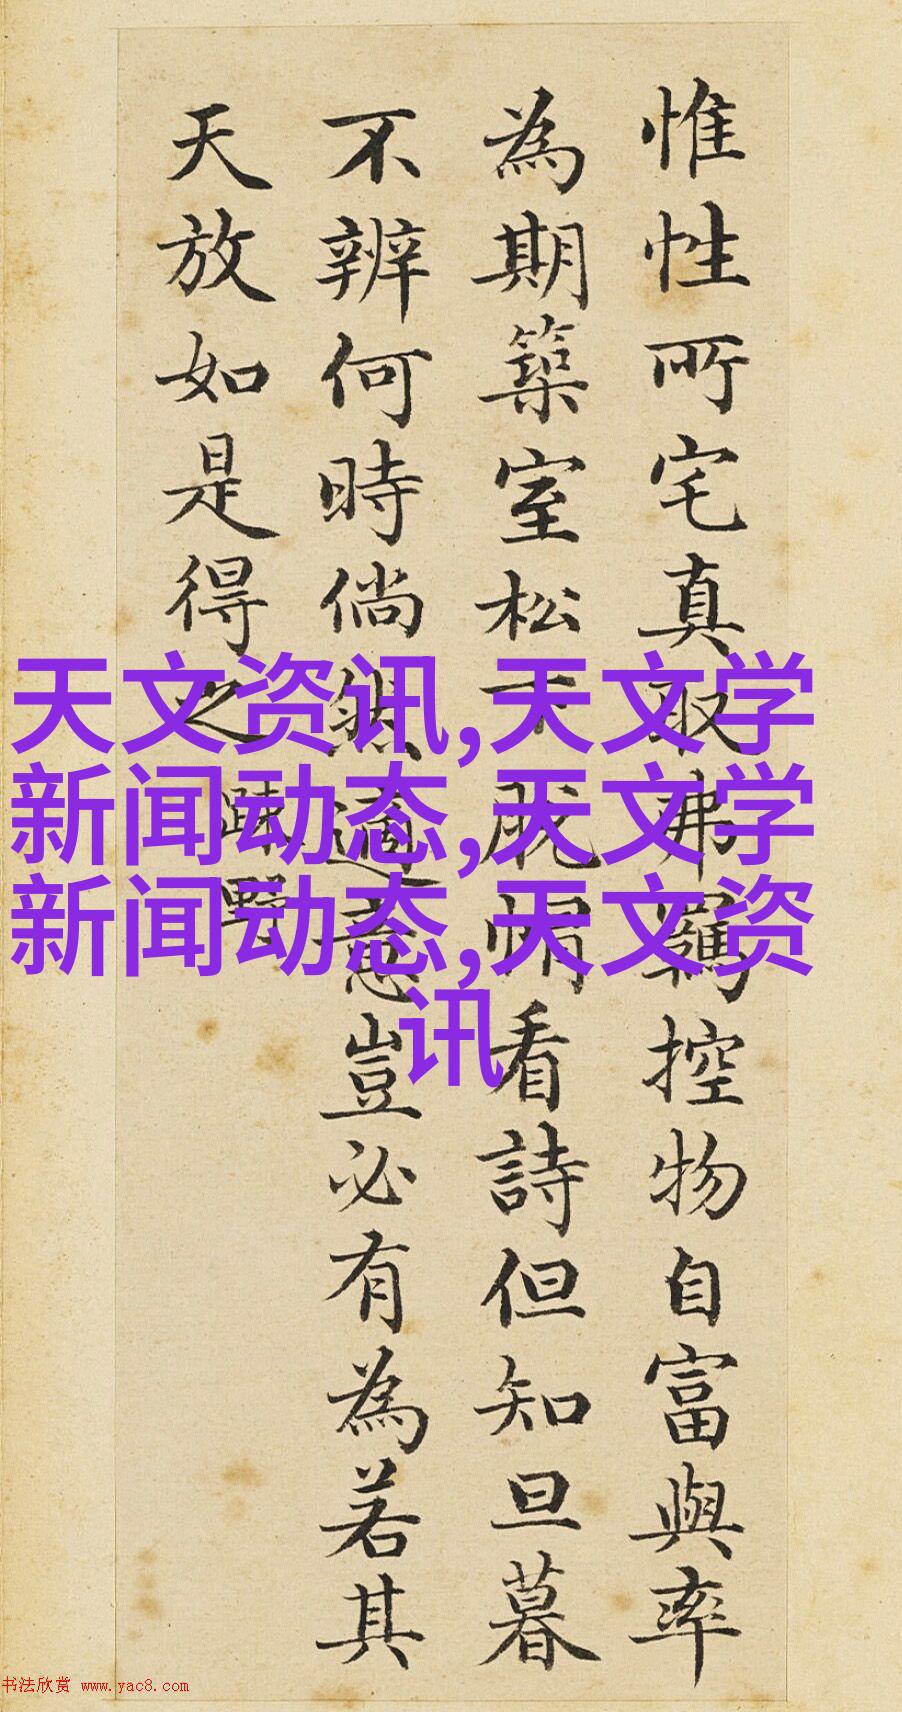 惟性所宅真取弗羈控物自富與率
為期築室松下脫帽看詩但知旦暮
不辨何時倘然適意豈必有為若其
天放如是得之疎野
天文资讯,天文学
新闻动态,天文学
新闻动态,天文资
讯
书法欣赏 www.yac8.com